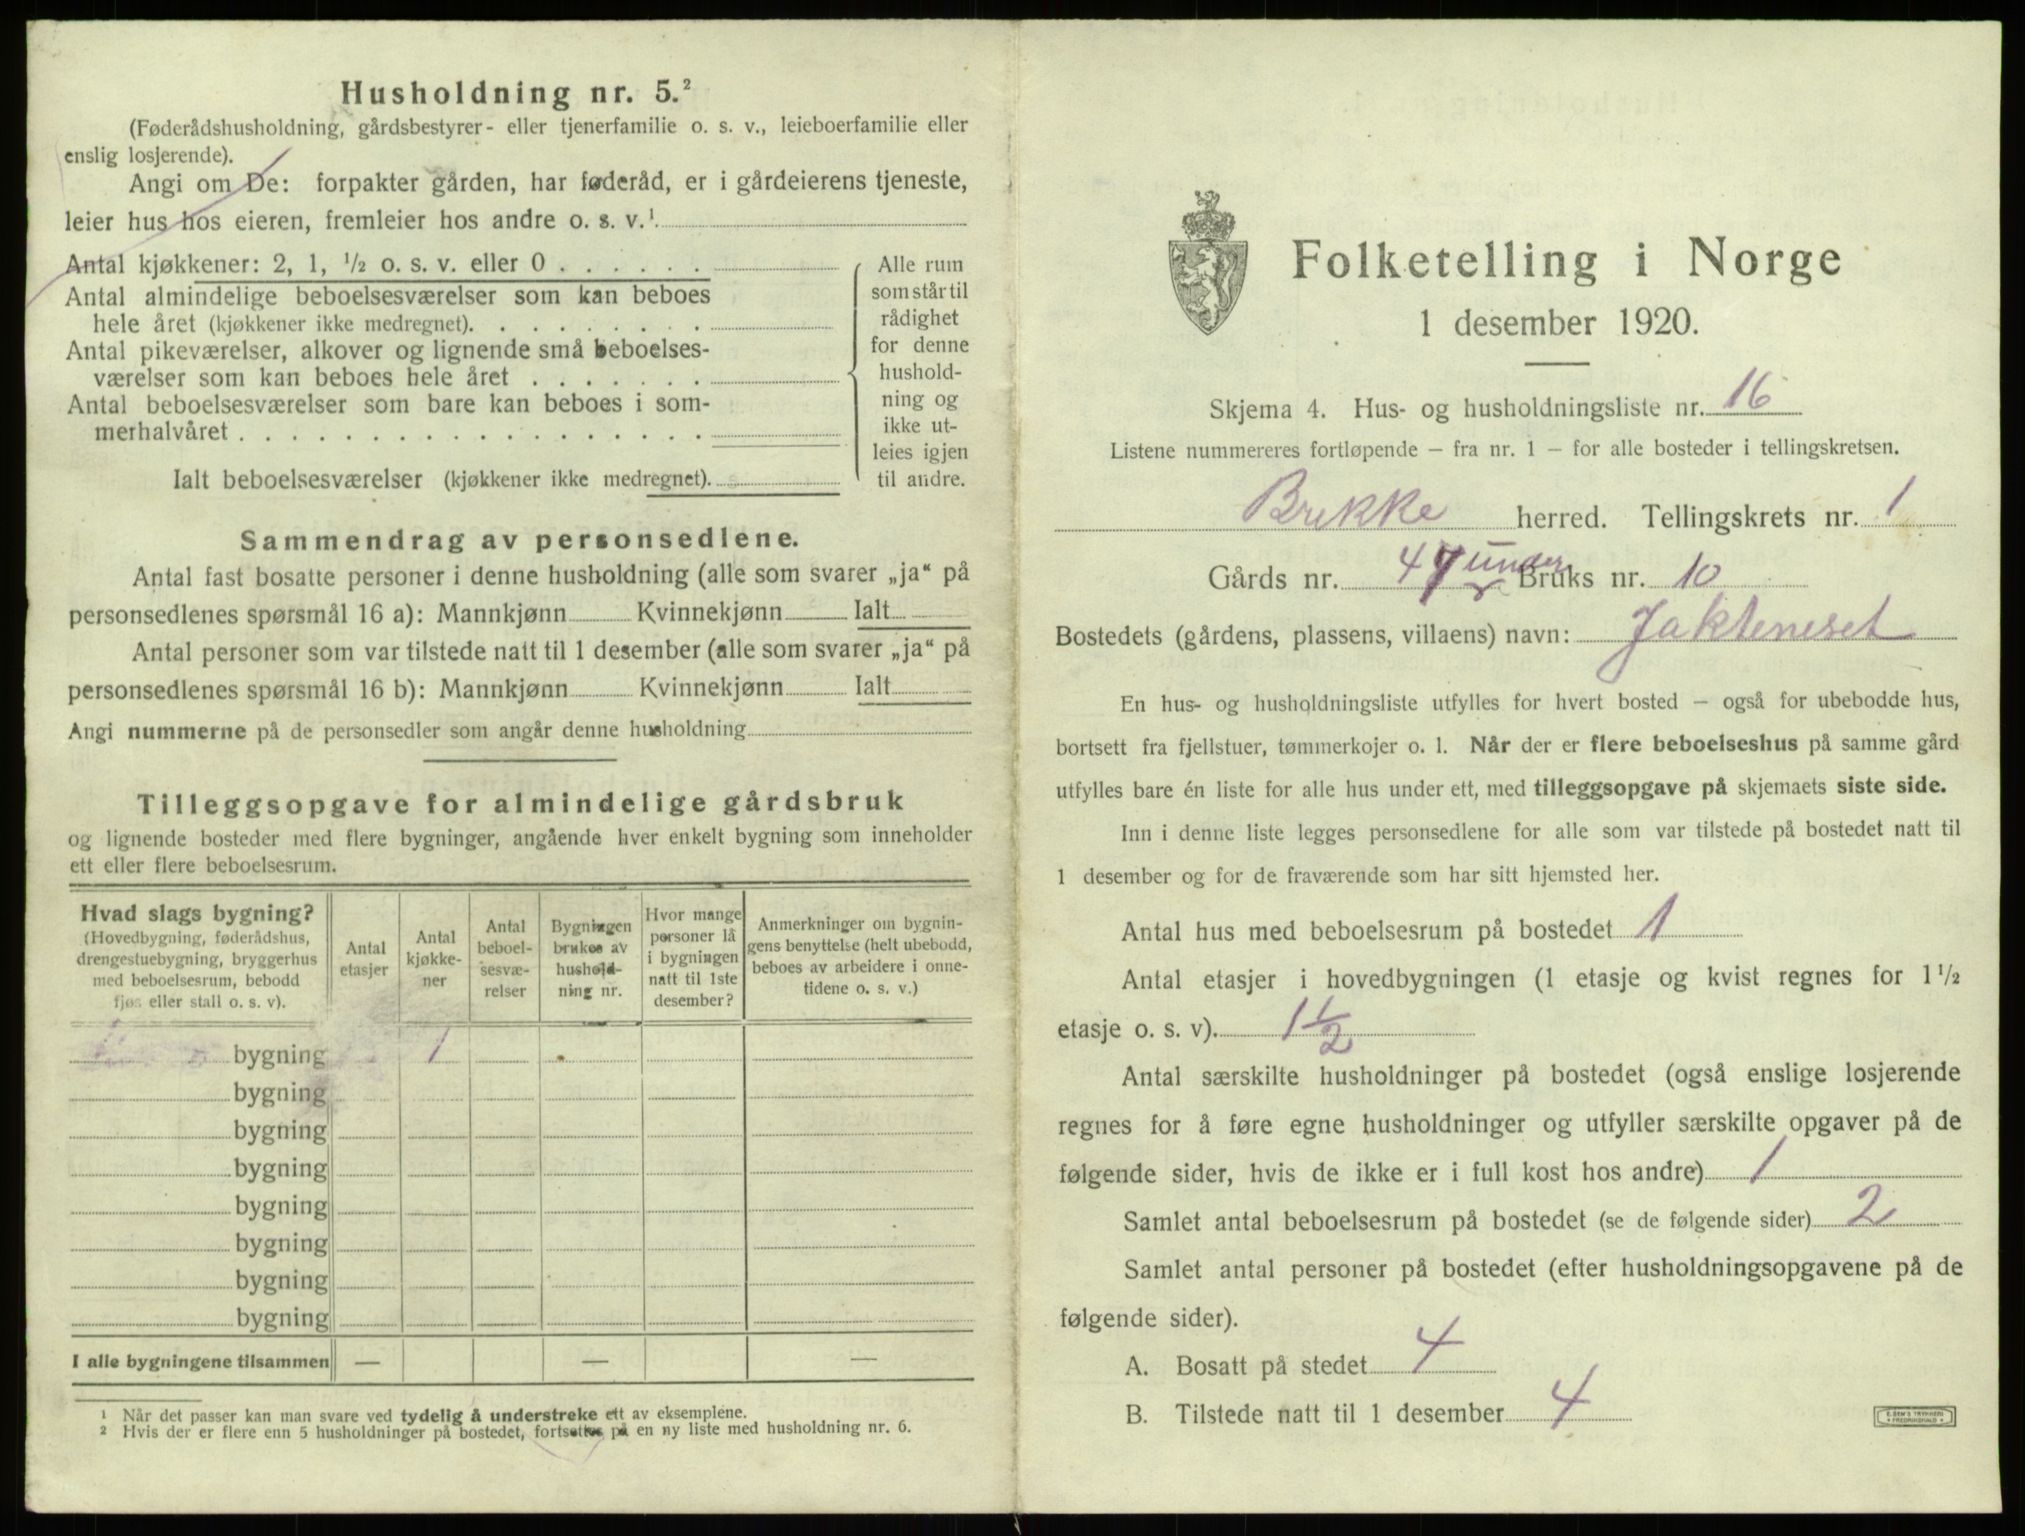 Husholdning nr. 5.²
(Føderådshusholdning, gårdsbestyrer- eller tjenerfamilie o. s. v., leieboerfamilie eller
enslig losjerende).
Angi om De: forpakter gården, har føderåd, er i gårdeierens tjeneste,
leier hus hos eieren, fremleier hos andre o. s. v.¹
Antal kjøkkener: 2, 1, ½ o. s. v. eller 0 . . . . . .
Antal almindelige beboelsesværelser som kan beboes
hele året (kjøkkener ikke medregnet). . . . . . . . .
Antal pikeværelser, alkover og lignende små beboelses-
værelser som kan beboes hele året . . . . . . .
Antal beboelsesværelser som bare kan beboes i som-
merhalvåret . . . . . . . . . . . . . . . . . .
Ialt beboelsesværelser (kjøkkener ikke medregnet).
Alle rum
som står til
rådighet
for denne
hushold-
ning og
ikke ut-
leies igjen
til andre.
Sammendrag av personsedlene.
Antal fast bosatte personer i denne husholdning (alle som svarer „ja“ på
personsedlenes spørsmål 16 a): Mannkjønn Kvinnekjønn Ialt
Antal personer som var tilstede natt til 1 desember (alle som svarer „ja“ på
personsedlenes spørsmål 16 b): Mannkjønn Kvinnekjønn Ialt
Angi nummerne på de personsedler som angår denne husholdning
Tilleggsopgave for almindelige gårdsbruk
og lignende bosteder med flere bygninger, angående hver enkelt bygning som inneholder
ett eller flere beboelsesrum.
Hvad slags bygning?
(Hovedbygning, føderådshus,
drengestuebygning, bryggerhus
med beboelsesrum, bebodd
fjøs eller stall o. s. v).
Antal
etasjer
Antal
kjøkke-
ner
Antal
beboel-
sesvæ-
relser
Bygningen
brukes av
hushold-
ning nr.
Hvor mange
personer lå
i bygningen
natt til 1ste
desember?
Anmerkninger om bygnin-
gens benyttelse (helt ubebodd,
beboes av arbeidere i onne-
tidene o. s. v.)
bygning 1
bygning
bygning
bygning
bygning
bygning
bygning
bygning
I alle bygningene tilsammen — — —
¹ Når det passer kan man svare ved tydelig å understreke ett av eksemplene.
² Hvis der er flere enn 5 husholdninger på bostedet, fortsettes på en ny liste med husholdning nr. 6.
Folketelling i Norge
1 desember 1920.
Skjema 4. Hus- og husholdningsliste nr. 16
Listene nummereres fortløpende – fra nr. 1 – for alle bosteder i tellingskretsen.
Brekke herred. Tellingskrets nr. 1
Gårds nr. 47 under Bruks nr. 10
Bostedets (gårdens, plassens, villaens) navn: Jakteneset
En hus- og husholdningsliste utfylles for hvert bosted – også for ubebodde hus,
bortsett fra fjellstuer, tømmerkojer o. l. Når der er flere beboelseshus på samme gård
utfylles bare én liste for alle hus under ett, med tilleggsopgave på skjemaets siste side.
Inn i denne liste legges personsedlene for alle som var tilstede på bostedet natt til
1 desember og for de fraværende som har sitt hjemsted her.
Antal hus med beboelsesrum på bostedet 1
Antal etasjer i hovedbygningen (1 etasje og kvist regnes for 1 ½
etasje o. s. v). 1½
Antal særskilte husholdninger på bostedet (også enslige losjerende
regnes for å føre egne husholdninger og utfyller særskilte opgaver på de
følgende sider, hvis de ikke er i full kost hos andre) 1
Samlet antal beboelsesrum på bostedet (se de følgende sider) 2
Samlet antal personer på bostedet (efter husholdningsopgavene på de
følgende sider).
A. Bosatt på stedet 4
B. Tilstede natt til 1 desember 4
E. SEM'S TRYKKERI
FREDRIKSHALD